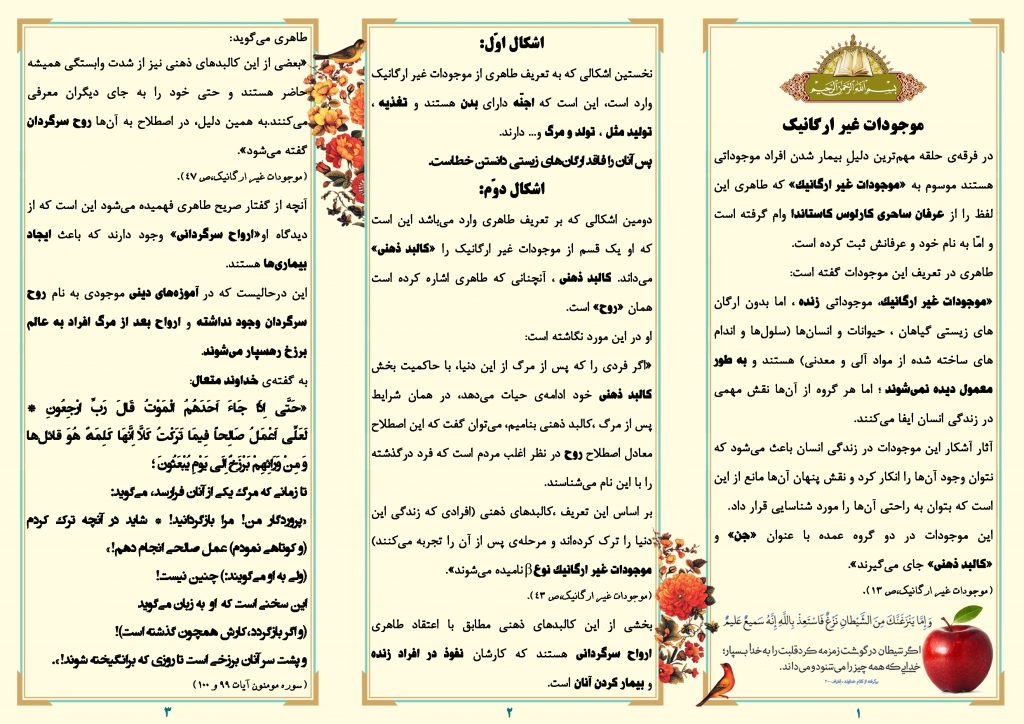 بسم الله الرحمن الرحیم
موجودات غیر ارگانیک
در فرقه‌ی حلقه مهم‌ترین دلیل بیمار شدن افراد موجوداتی
هستند موسوم به «موجودات غیر ارگانیك» که طاهری این
لفظ را از عرفان ساحری کارلوس کاستاندا وام گرفته است
و امّا به نام خود و عرفانش ثبت کرده است.
طاهری در تعریف این موجودات گفته است:
«موجودات غیر ارگانیك، موجوداتی زنده ، اما بدون ارگان
های زیستی گیاهان ، حیوانات و انسان‌ها (سلول‌ها و اندام
های ساخته شده از مواد آلی و معدنی) هستند و به طور
معمول دیده نمی‌شوند ؛ اما هر گروه از آن‌ها نقش مهمی
در زندگی انسان ایفا می‌کنند.
آثار آشکار این موجودات در زندگی انسان باعث می‌شود که
نتوان وجود آن‌ها را انکار کرد و نقش پنهان آن‌ها مانع از این
است که بتوان به راحتی آن‌ها را مورد شناسایی قرار داد.
این موجودات در دو گروه عمده با عنوان «جن» و
«کالبد ذهنی» جای می‌گیرند».
(موجودات غیر ارگانیک،ص ۱۳).
وَ إِمَّا يَنْزَغَنَّكَ مِنَ الشَّيْطَانِ نَزْغٌ فَاسْتَعِذْ بِاللَّهِ إِنَّهُ سَمِيعٌ عَلِيمٌ
اگر شیطان در گوشت زمزمه کرد قلبت را به خدا بسپار؛
خدایی که همه چیز را می‌شنود و می‌داند.
برگرفته از کلام خداوند ، اعراف۲۰۰
۱
اشکال اوّل:
نخستین اشکالی که به تعریف طاهری از موجودات غیر ارگانیک
وارد است، این است که اجنّه دارای بدن هستند و تغذیه ،
تولید مثل ، تولد و مرگ و... دارند.
پس آنان را فاقد ارگان‌های زیستی دانستن خطاست.
اشکال دوّم:
دومین اشکالی که بر تعریف طاهری وارد می‌باشد این است
که او یک قسم از موجودات غیر ارگانیک را «کالبد ذهنی»
می‌داند. کالبد ذهنی ، آنچنانی که طاهری اشاره کرده است
همان «روح» است.
او در این مورد نگاشته است:
«اگر فردی را که پس از مرگ از این دنیا، با حاکمیت بخش
کالبد ذهنی خود ادامه‌ی حیات می‌دهد، در همان شرایط
پس از مرگ ،کالبد ذهنی بنامیم، می‌توان گفت که این اصطلاح
معادل اصطلاح روح در نظر اغلب مردم است که فرد درگذشته
را با این نام می‌شناسند.
بر اساس این تعریف ،کالبدهای ذهنی (افرادی که زندگی این
دنیا را ترک کرده‌اند و مرحله‌ی پس از آن را تجربه می‌کنند)
موجودات غیر ارگانیك نوعβ نامیده می‌شوند».
(موجودات غیر ارگانیک،ص ۴۳).
بخشی از این کالبدهای ذهنی مطابق با اعتقاد طاهری
ارواح سرگردانی هستند که کارشان نفوذ در افراد زنده
و بیمار کردن آنان است.
۲
طاهری می‌گوید:
«بعضی از این کالبدهای ذهنی نیز از شدت وابستگی همیشه
حاضر هستند و حتی خود را به جای دیگران معرفی
می‌کنند.به همین دلیل، در اصطلاح به آن‌ها روح سرگردان
گفته می‌شود».
(موجودات غیر ارگانیک،ص ۴۷).
آنچه از گفتار صریح طاهری فهمیده می‌شود این است که از
دیدگاه او«ارواح سرگردانی» وجود دارند که باعث ایجاد
بیماری‌ها هستند.
این درحالیست که در آموزه‌های دینی موجودی به نام روح
سرگردان وجود نداشته و ارواح بعد از مرگ افراد به عالم
برزخ رهسپار می‌شوند.
به گفته‌ی خداوند متعال:
«حَتَّى إِذَا جَاءَ أَحَدَهُمُ الْمَوْتُ قَالَ رَبِّ ارْجِعُونِ *
لَعَلِّي أَعْمَلُ صَالِحاً فِيمَا تَرَكْتُ كَلَّا إِنَّهَا كَلِمَةٌ هُوَ قَائِلُهَا
وَ مِنْ وَرَائِهِمْ بَرْزَخٌ إِلَى يَوْمِ يُبْعَثُونَ ؛
تا زمانی که مرگ یکی از آنان فرارسد، می‌گوید:
«پروردگار من! مرا بازگردانید! * شاید در آنچه ترک کردم
(و کوتاهی نمودم) عمل صالحی انجام دهم!»
(ولی به او می‌گویند:) چنین نیست!
این سخنی است که او به زبان می‌گوید
(و اگر بازگردد،کارش همچون گذشته است)!
و پشت سر آنان برزخی است تا روزی که برانگیخته شوند!».
(سوره مومنون آیات ۹۹ و ۱۰۰)
۳